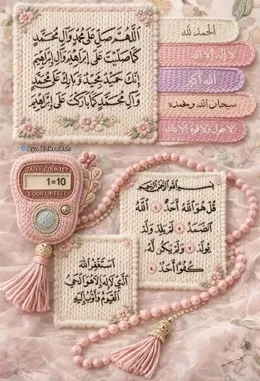 اللهم صل على محمد وآل محمد
كما صليت على إبراهيم وآل إبراهيم
إنك حميد مجيد وبارك على محمد
وآل محمد كما باركت على إبراهيم
الحمد لله
لا إله إلا الله
الله أكبر
سبحان الله وبحمده
لا حول ولا قوة إلا بالله
TALLY COUNTER
1=10
COUNT RESET
بسم الله الرحمن الرحيم
قل هو الله أحد ۝ الله
الصمد ۝ لم يلد ولم
يولد ۝ ولم يكن له
كفوا أحد ۝
أستغفر الله
الذي لا إله إلا هو الحي
القيوم وأتوب إليه